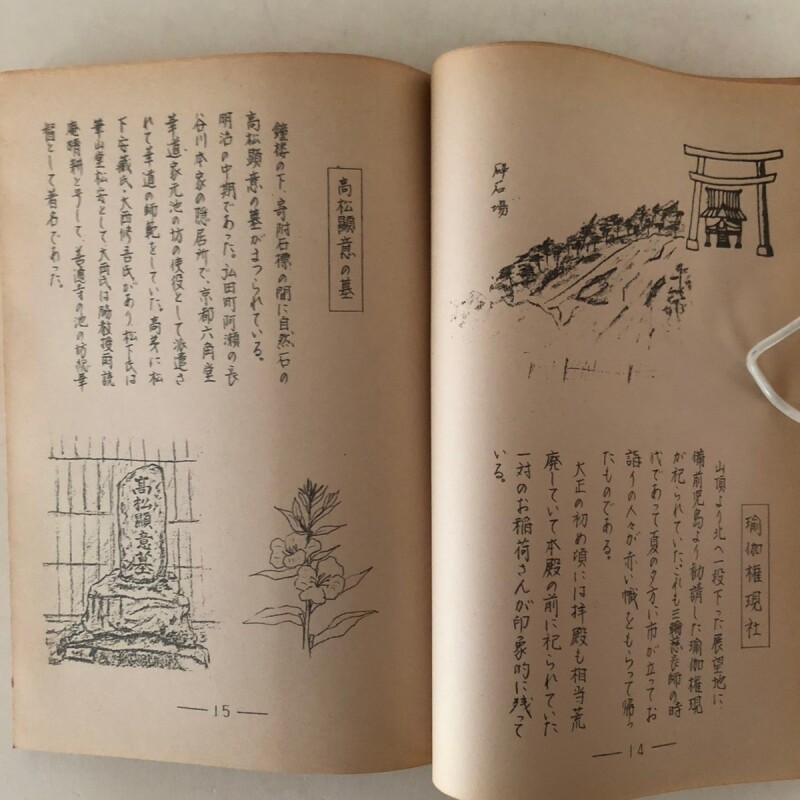 砕石場
瑜伽権現社
山頂より北へ一段下った展望地に、
備前児島より勧請した瑜伽権現
が祀られていた。これも三輪慈師の時
代であって夏の夕方に市が立ってお
詣りの人々が赤い幟をもらって帰っ
たものである。
大正の初め頃には拝殿も相当荒
廃していて本殿の前に祀られていた
一対のお稲荷さんが印象的に残って
いる。
—14—
高松顕意の墓
鐘楼の下、寄附石標の間に自然石の
高松顕意の墓がまつられている。
明治の中期であった。弘田町阿瀬の長
谷川本家の隠居所で、京都六角堂
華道家元池の坊の使役として派遣さ
れて華道の師範をしていた。高弟に松
下安蔵氏・大西修吾氏があり、松下氏は
華山堂松安として大西氏は脇教授
庵晴耕と号して、善通寺の池の坊華
督として著名であった。
高松顕意墓
—15—